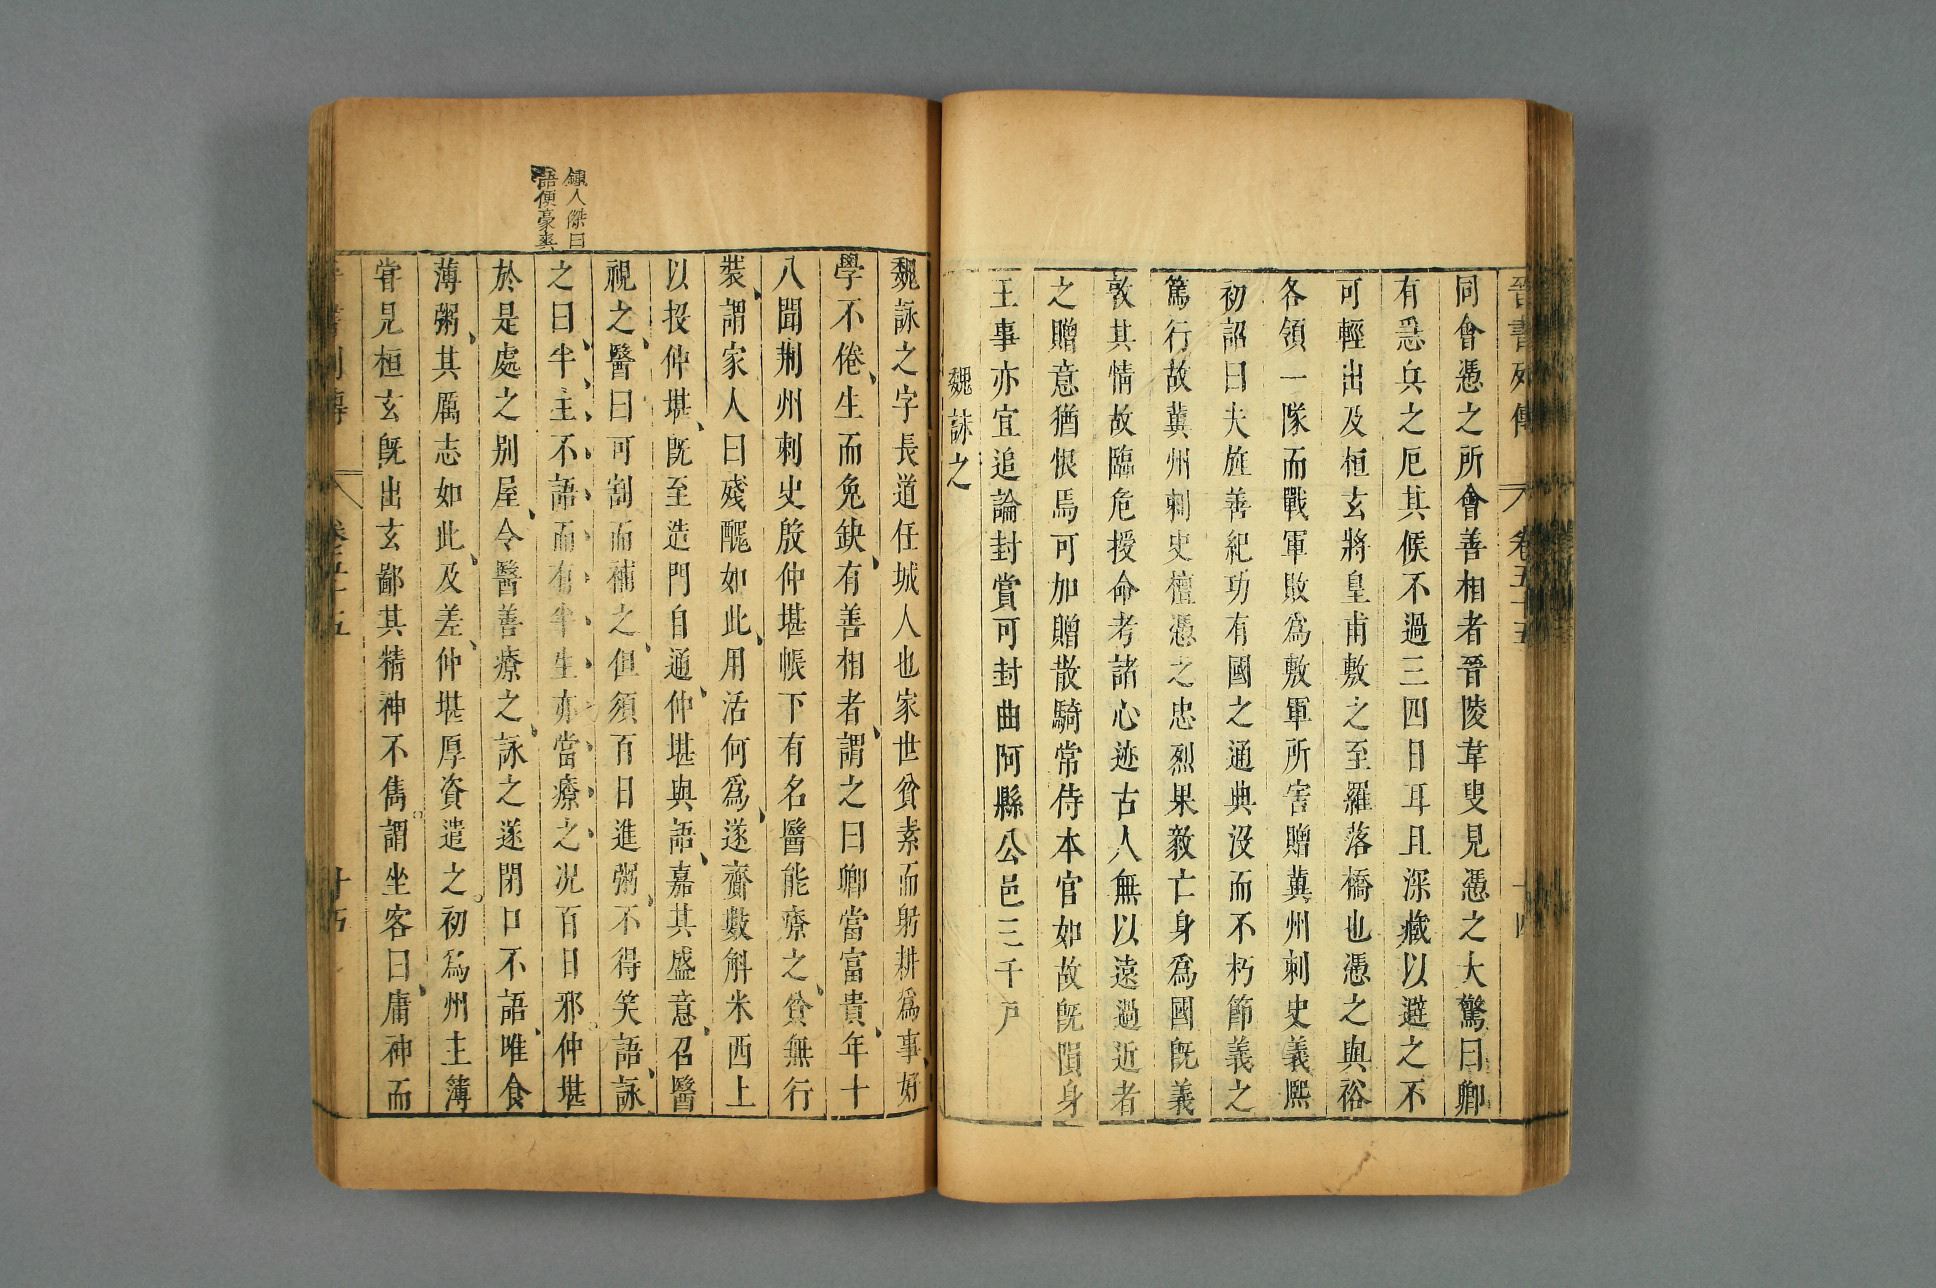 晉書列傳 卷五十五 十四
同會憑之所會善相者晉陵韋叟見憑之大驚曰卿
有急兵之厄其候不過三四日耳且深藏以避之不
可輕出及桓玄將皇甫敷之至羅落橋也憑之與裕
各領一隊而戰軍敗爲敷軍所害贈冀州刺史義熙
初詔曰夫旌善紀功有國之通典沒而不朽節義之
篤行故冀州刺史檀憑之忠烈果毅亡身爲國旣義
敦其情故臨危授命考諸心迹古人無以遠過近者
之贈意猶恨焉可加贈散騎常侍本官如故旣隕身
王事亦宜追論封賞可封曲阿縣公邑三千戸
魏詠之
魏詠之字長道任城人也家世貧素而躬耕爲事、好
學不倦、生而兔缺、有善相者、謂之曰卿當富貴、年十
八聞荆州刺史殷仲堪帳下有名醫能療之、貧無行
裝、謂家人曰殘醜如此、用活何爲、遂齎數斛米西上
以投仲堪、旣至造門自通、仲堪與語、嘉其盛意、召醫
視之、醫曰可割而補之、但須百日進粥、不得笑語、詠
之曰、半、生、不、語、而、有、半、生、亦、當、療、之、况百日邪。仲堪
於是處之别屋、令醫善療之、詠之遂閉口不語、唯食
薄粥、其厲志如此、及差、仲堪厚資遣之。初爲州主簿
甞見桓玄旣出玄鄙其精神不雋。謂坐客曰、庸神而
鍾人傑曰
語便豪爽
卷五十五 十五